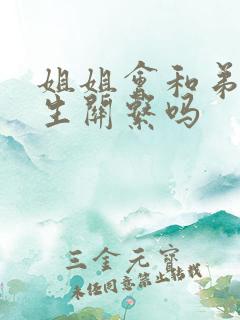 姐姐会和弟
生關繫吗
三金元寶
未经同意禁止转载